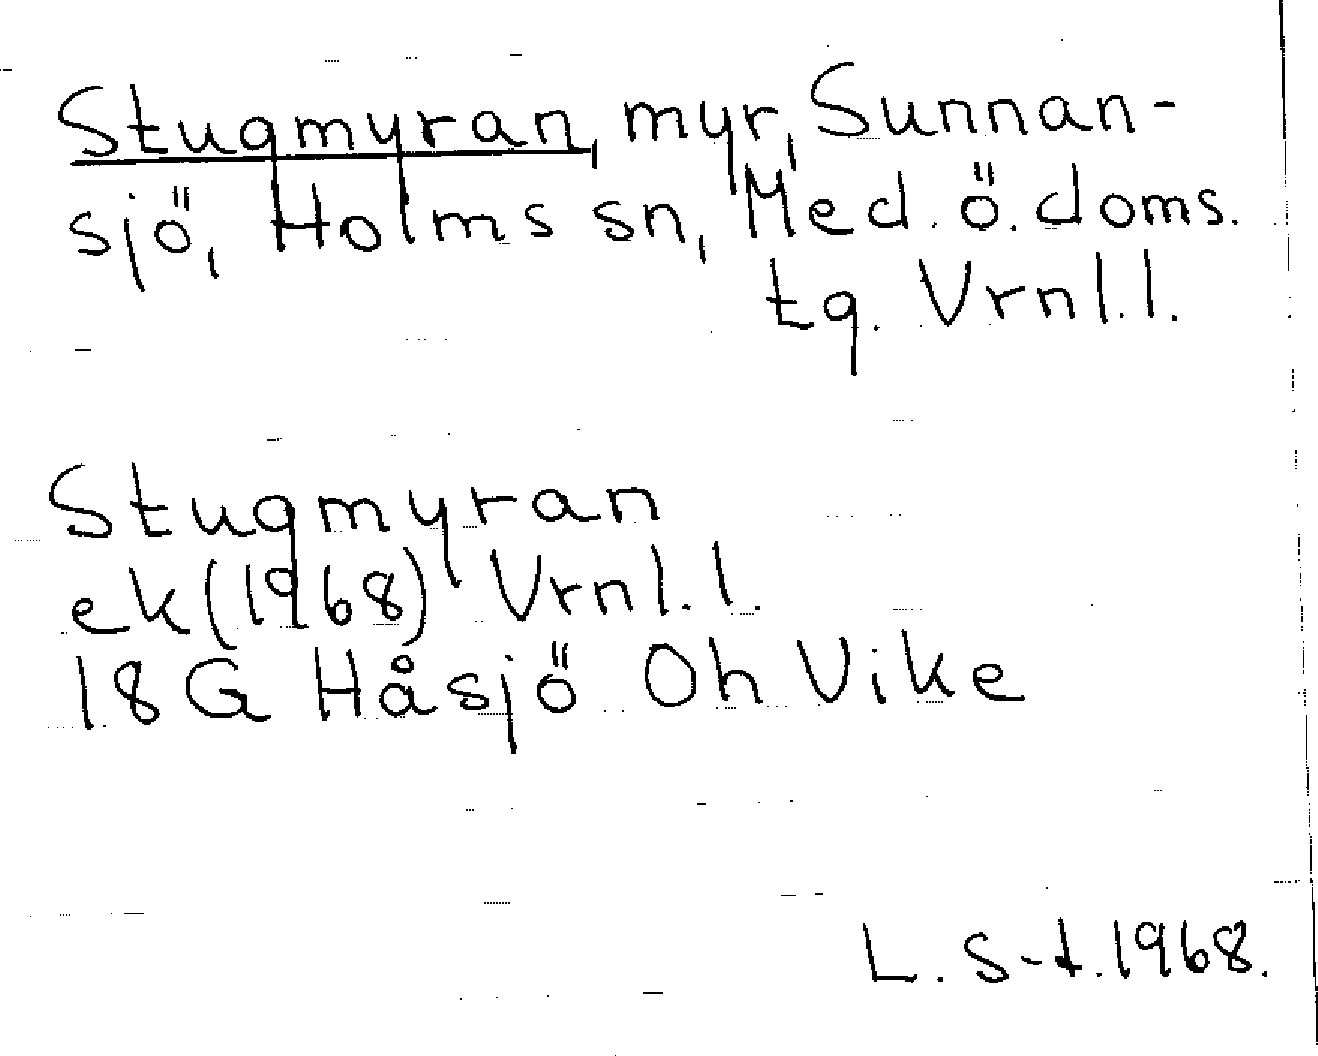 Stugmyran, myr, Sunnan-
sjö, Holms sn, Med. ö. doms.
tg. Vrnl.l.
Stugmyran
ek (1968) Vrnl.l.
18G Håsjö Oh Vike
L. S-t. 1968.